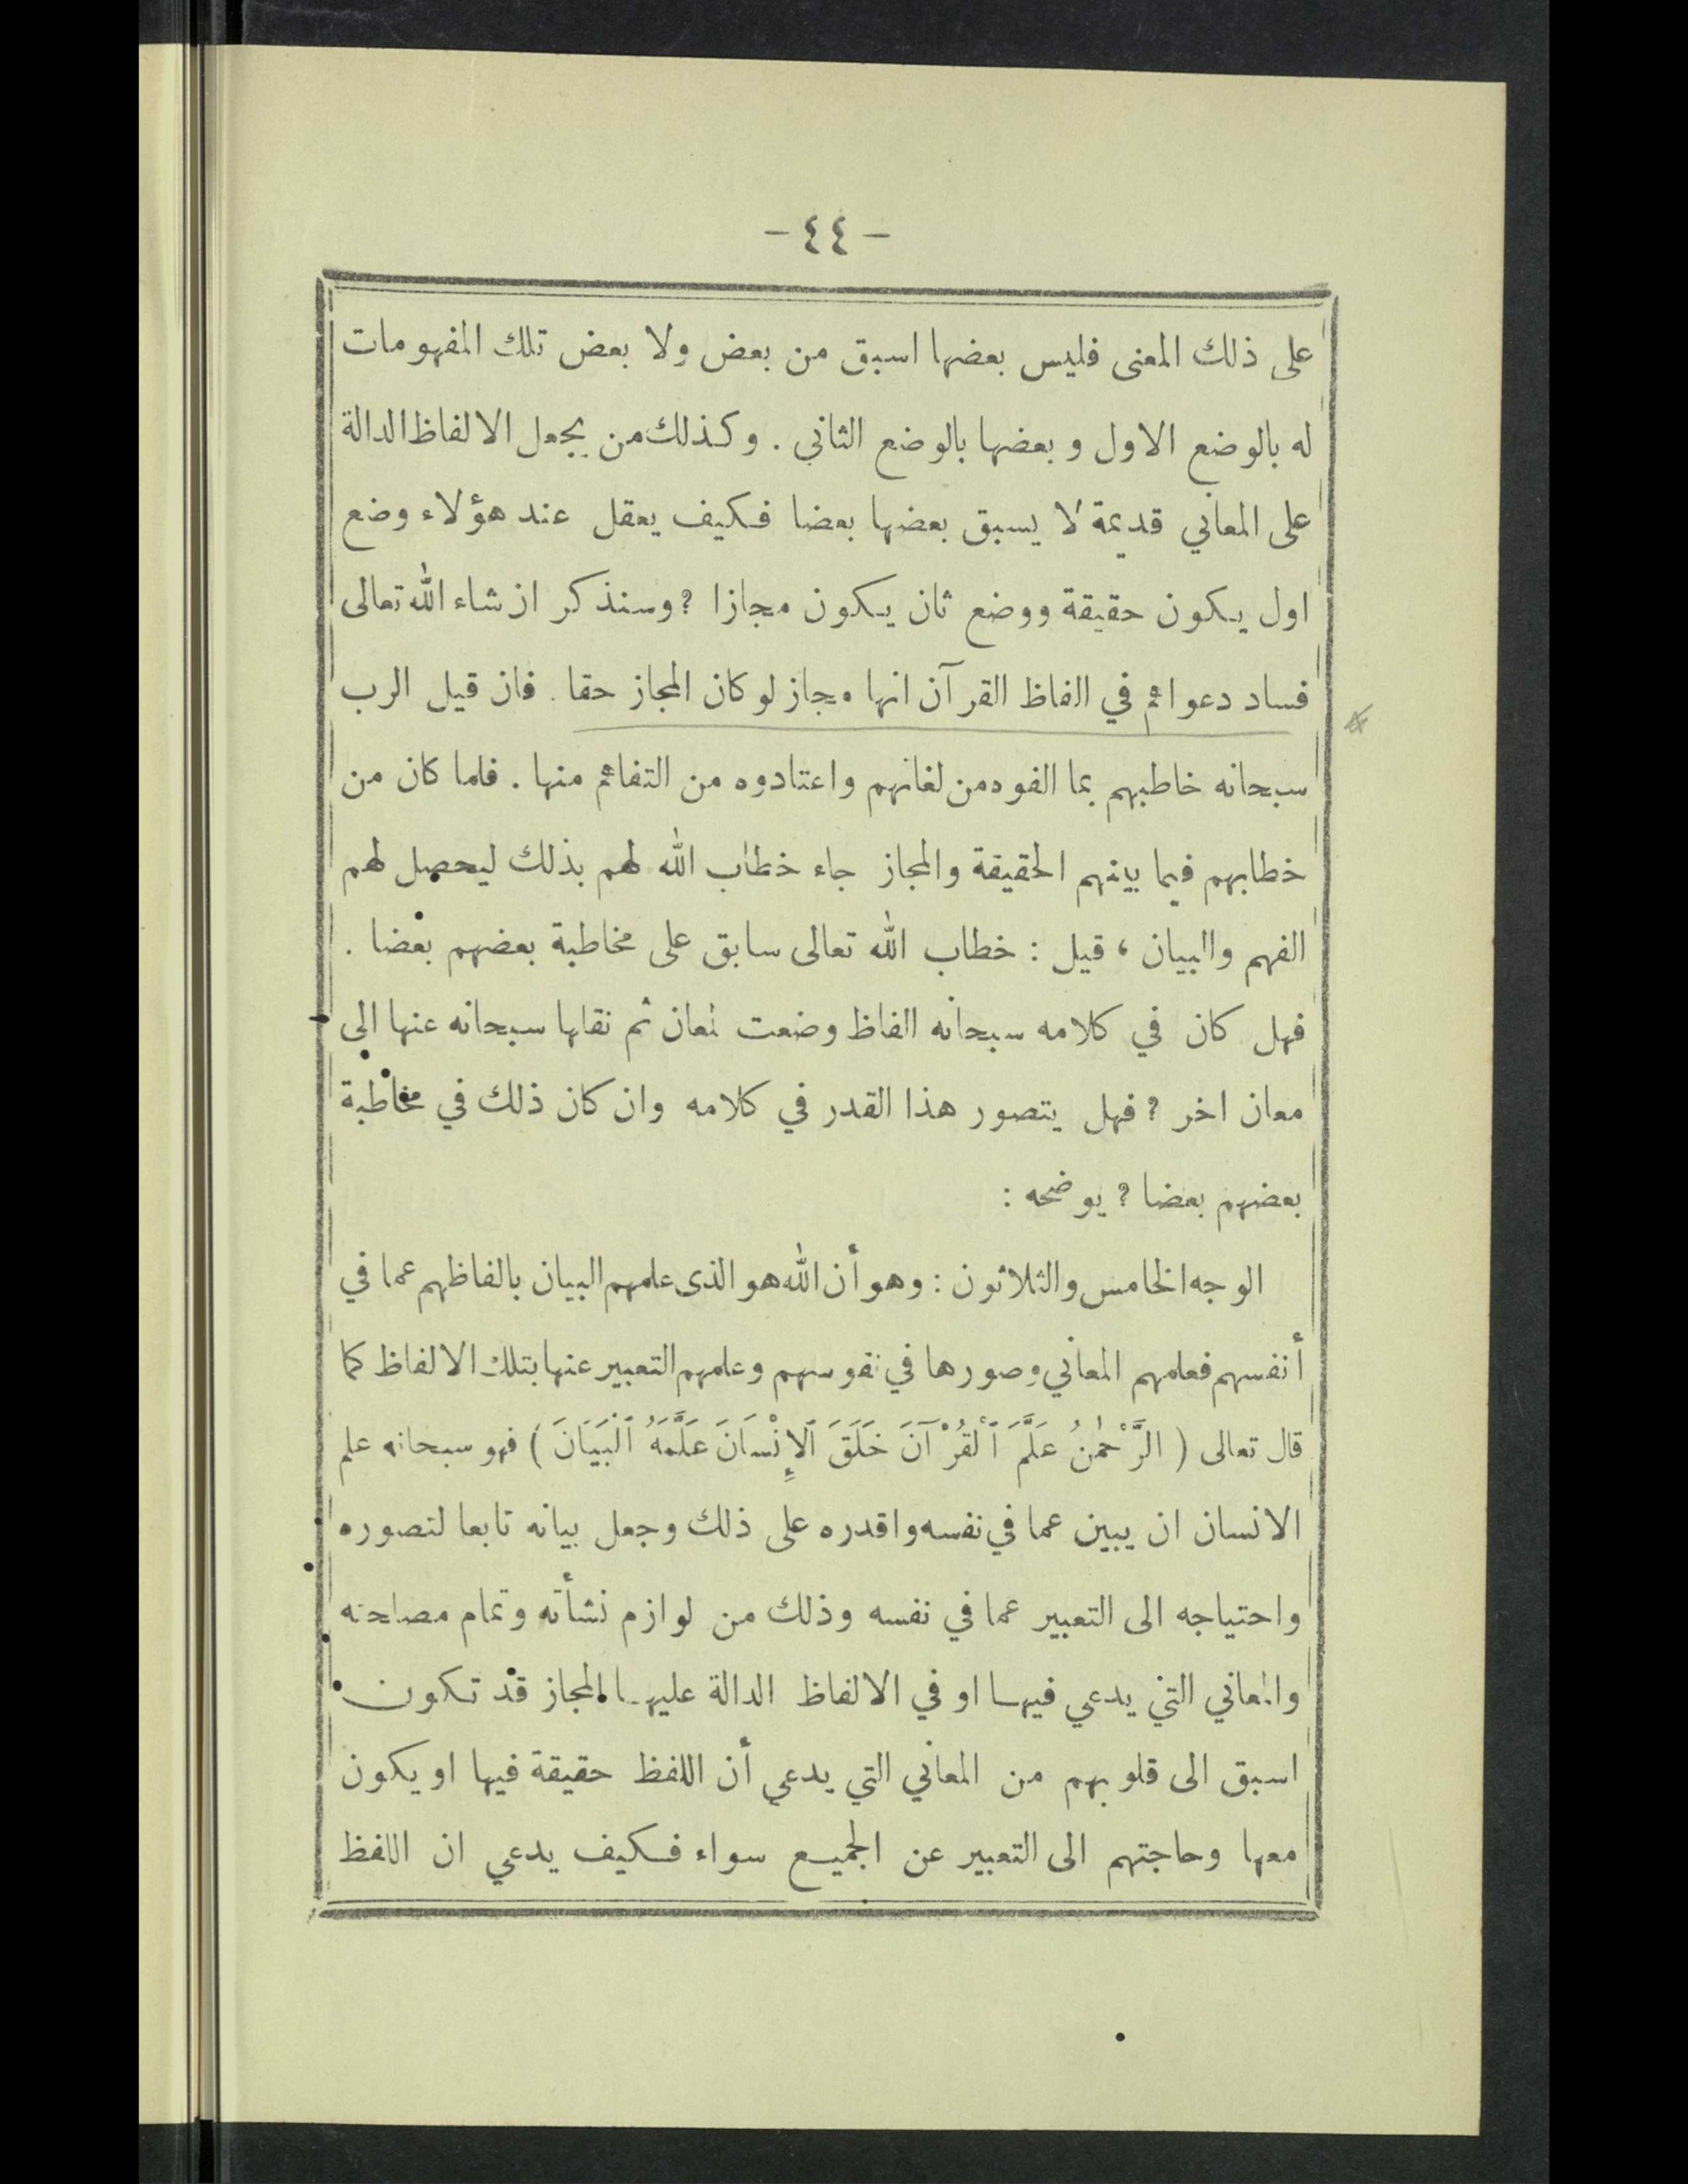 - ٤٤ -
على ذلك المعنى فليس بعضها اسبق من بعض ولا بعض تلك المفهومات
له بالوضع الاول وبعضها بالوضع الثاني . وكذلك من يجعل الالفاظ الدالة
على المعاني قديمة لا يسبق بعضها بعضا فكيف يعقل عند هؤلاء وضع
اول يكون حقيقة ووضع ثان يكون مجازا ؟ وسنذكر ان شاء الله تعالى
فساد دعواهم في الفاظ القرآن انها مجاز لو كان المجاز حقا . فان قيل الرب
سبحانه خاطبهم بما الفوه من لغاتهم واعتادوه من التفاهم منها . فلما كان من
خطابهم فيما بينهم الحقيقة والمجاز جاء خطاب الله لهم بذلك ليحصل لهم
الفهم والبيان ، قيل : خطاب الله تعالى سابق على مخاطبة بعضهم بعضا .
فهل كان في كلامه سبحانه الفاظ وضعت لمعان ثم نقلها سبحانه عنها الى
معان اخر ؟ فهل يتصور هذا القدر في كلامه وان كان ذلك في مخاطبة
بعضهم بعضا ؟ يوضحه :
الوجه الخامس والثلاثون : وهو أن الله هو الذى علمهم البيان بالفاظهم عما في
أنفسهم فعلمهم المعاني وصورها في نفوسهم وعلمهم التعبير عنها بتلك الالفاظ كما
قال تعالى ( الرَّحْمٰنُ عَلَّمَ ٱلْقُرْآنَ خَلَقَ ٱلْإِنْسَانَ عَلَّمَهُ ٱلْبَيَانَ ) فهو سبحانه علم
الانسان ان يبين عما في نفسه واقدره على ذلك وجعل بيانه تابعا لتصوره
واحتياجه الى التعبير عما في نفسه وذلك من لوازم نشأته وتمام مصلحته
والمعاني التي يدعي فيها او في الالفاظ الدالة عليها المجاز قد تكون
اسبق الى قلوبهم من المعاني التي يدعي أن اللفظ حقيقة فيها او يكون
معها وحاجتهم الى التعبير عن الجميع سواء فكيف يدعي ان اللفظ